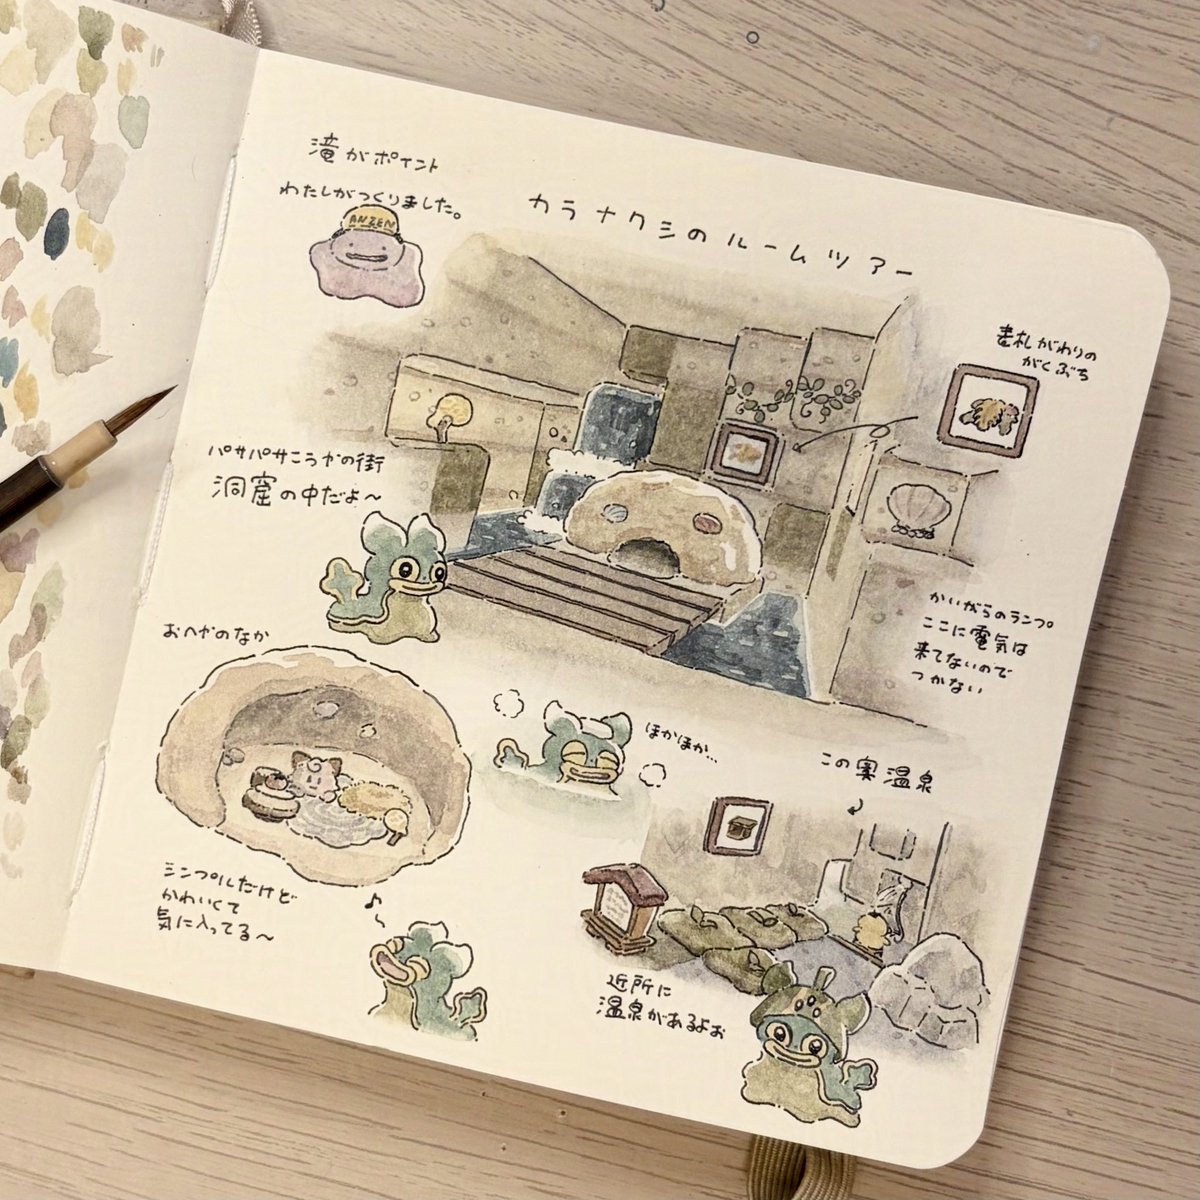 滝がポイント
わたしがつくりました。
ANZEN
カラナクシのルームツアー
表札がわりの
がくぶち
パサパサこうやの街
洞窟の中だよ～
かいがらのランプ。
ここに電気は
来てないので
つかない
おへやのなか
ほかほか…
この奥温泉
シンプルだけど
かわいくて
気に入ってる～
近所に
温泉があるよぉ